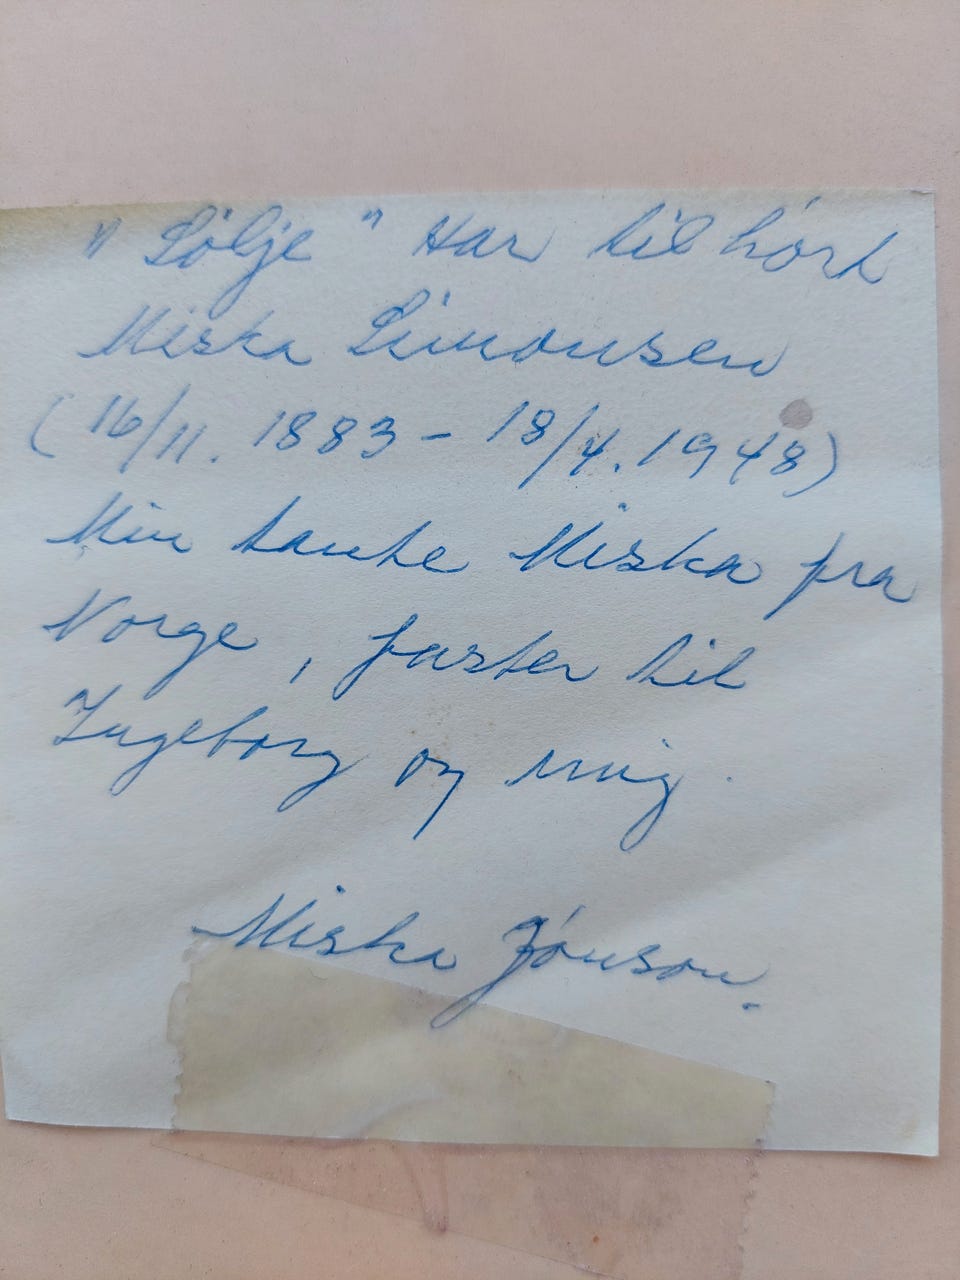 "Sölje" Har til hört
Miska Simonsen
(16/11. 1883 - 18/4. 1948)
Min tante Miska fra
Norge, faster til
Ingeborg og mig.
Miska Jónson.